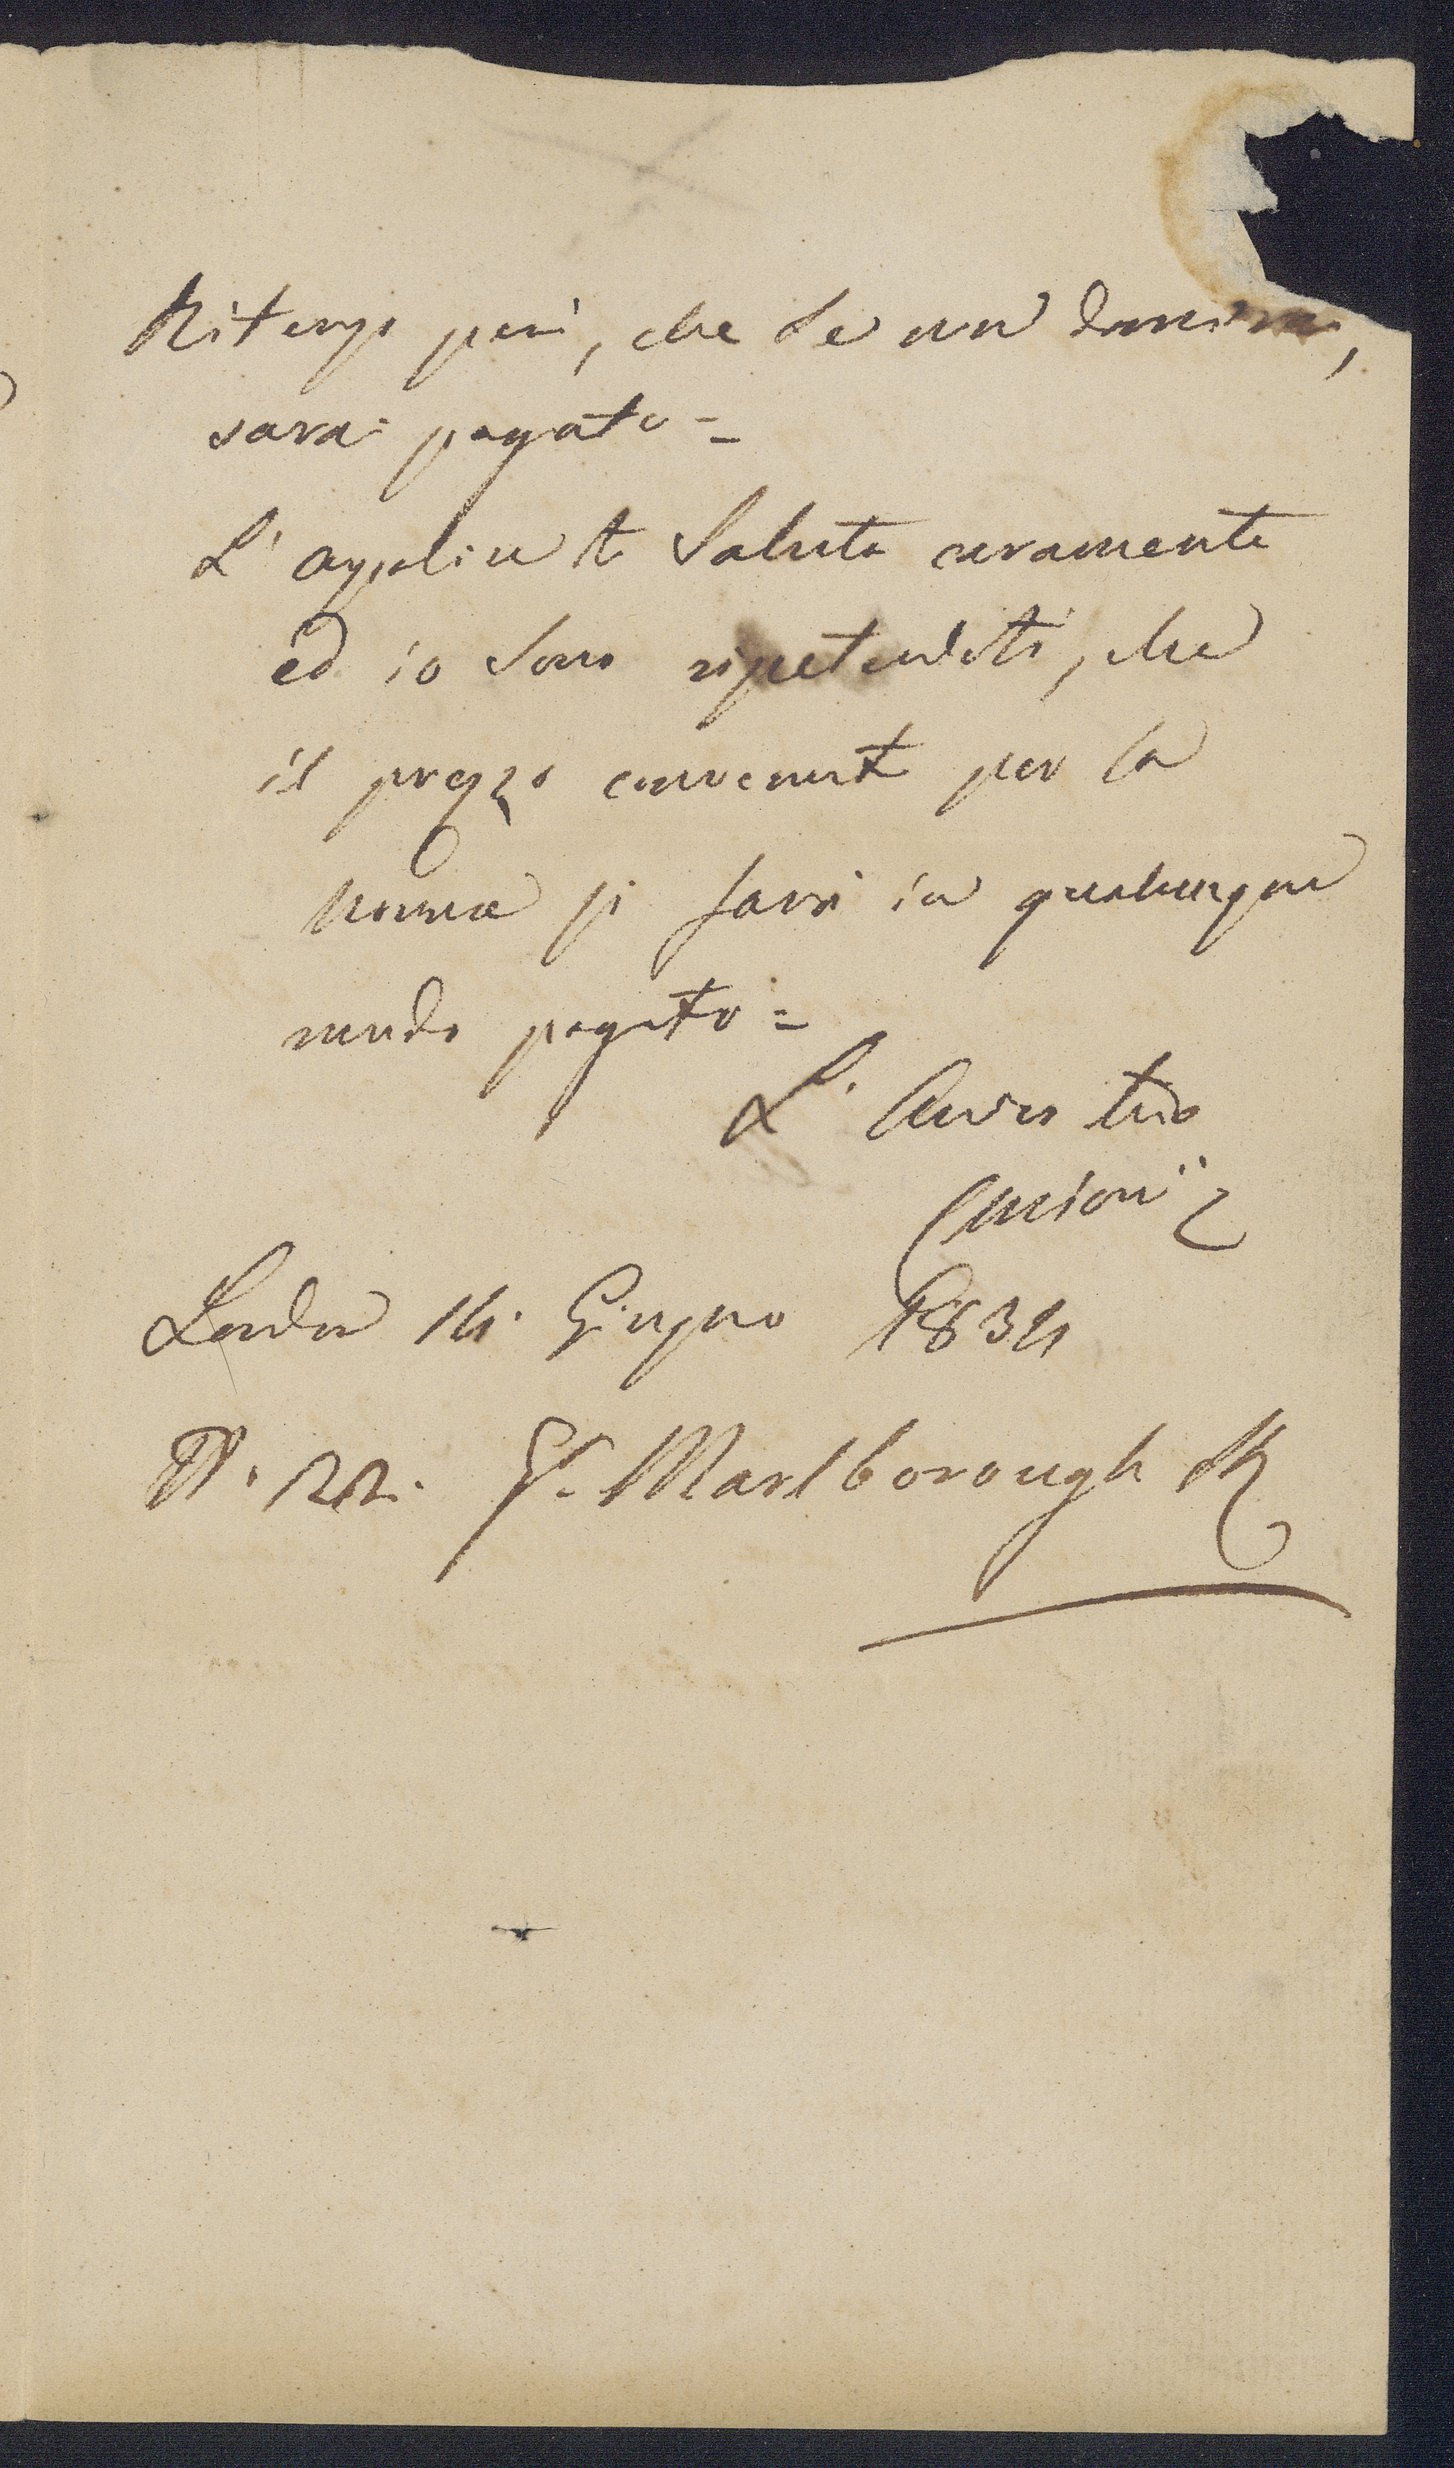 Ritengo però, che se non danzerai,
sarai pagato =
L'appalise te saluta caramente
ed io sono ripetendoti, che
il prezzo convenuto per la
Norma ti sarà in qualunque
modo pagato =
L'Amico tuo
London 14. Giugno 1834
N. 22. Gt. Marlborough St